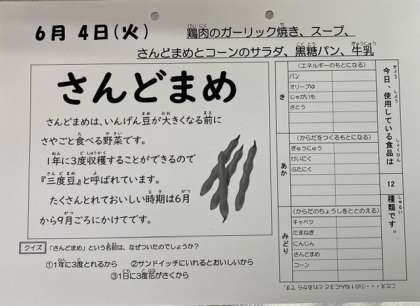 6月 4日(火) 鶏肉のガーリック焼き、スープ、
さんどまめとコーンのサラダ、黒糖パン、牛乳
さんどまめ
さんどまめは、いんげん豆が大きくなる前に
さやごと食べる野菜です。
1年に3度収穫することができるので
『三度豆』と呼ばれています。
たくさんとれておいしい時期は6月
から9月ごろにかけてです。
クイズ 「さんどまめ」という名前は、なぜついたのでしょうか？
①1年に3度とれるから ②サンドイッチにいれるとおいしいから
③1日に3度花がさくから
今日、使用している食品は 12 種類です。
き
(エネルギーのもとになる)
パン
オリーブゆ
じゃがいも
さとう
あか
(からだをつくるもとになる)
ぎゅうにゅう
けいにく
ぶたにく
みどり
(からだのちょうしをととのえる)
キャベツ
たまねぎ
にんじん
さんどまめ
コーン